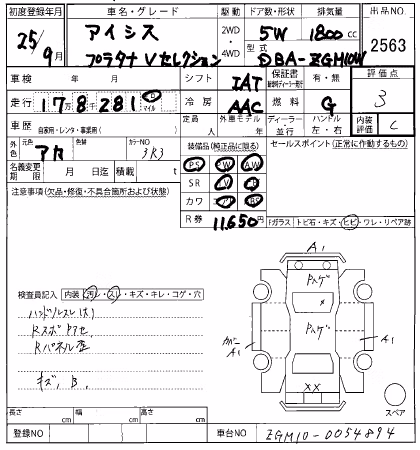 初度登録年月 車名・グレード 駆動 ドア数・形状 排気量 出品NO
25年9月 アイシス 2WD 5W 1800cc 2563
プラタナ Vセレクション 4WD 型式 DBA-ZGM10W
車検 年 月 シフト IAT 保証書 有・無 評価点
走行 17万8281 km マイル 冷房 AAC 燃料 G 3
車歴 自家用・レンタ・事業用( ) 定員 人 外車モデル 年 ディーラー・並行 ハンドル 左・右 内装評価 C
外色 元色 アカ 色替 カラーNO 3R3 装備品(純正品に限る) セールスポイント(正常に作動するもの)
名義変更期限 月 日迄 積載 t PS PW AW
注意事項(欠品・修復・不具合箇所および状態) SR
カワ
R券 11,650 Fガラス トビ石・キズ・ヒビ・ワレ・リペア跡
A1
検査員記入 内装 汚レ・スレ・キズ・キレ・コゲ・穴
ハンドルスレ有り
Rスポアセ
Rパネル歪
キズ、B.
パスゲ
パスゲ
A1
A1
XX
スペア
長さ cm 幅 cm 高さ cm
登録NO 車台NO ZGM10-0054894